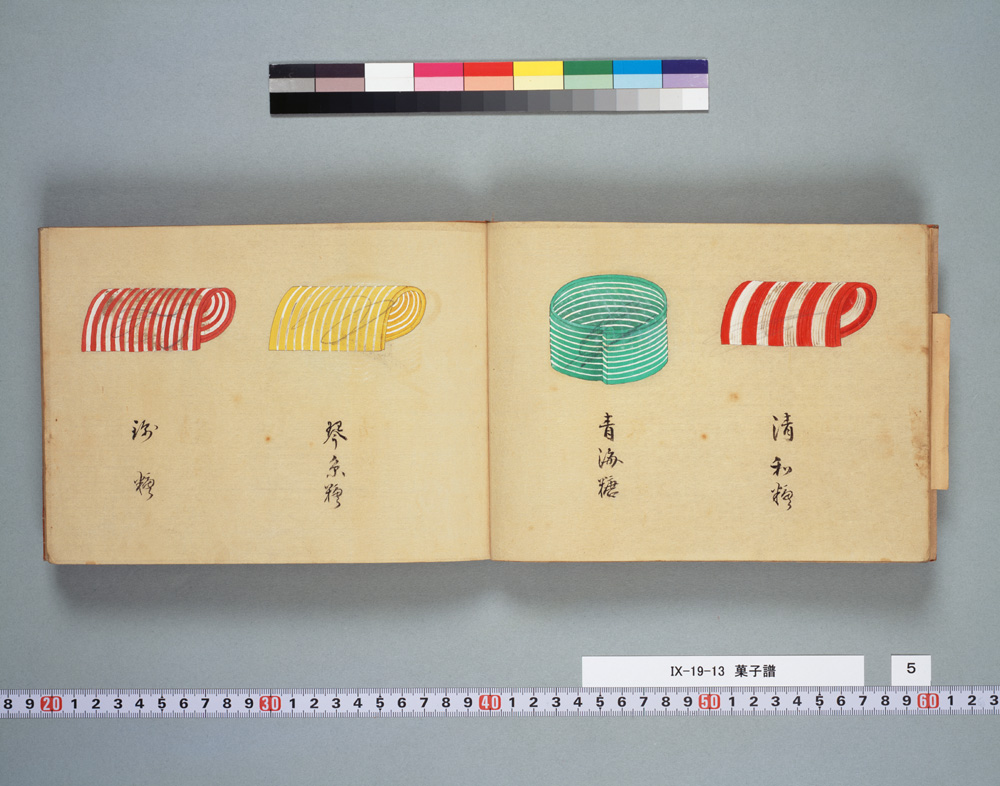 清和糖
青海糖
琴糸糖
糖
IX-19-13 菓子譜
5
8 9 20 1 2 3 4 5 6 7 8 9 30 1 2 3 4 5 6 7 8 9 40 1 2 3 4 5 6 7 8 9 50 1 2 3 4 5 6 7 8 9 60 1 2 3